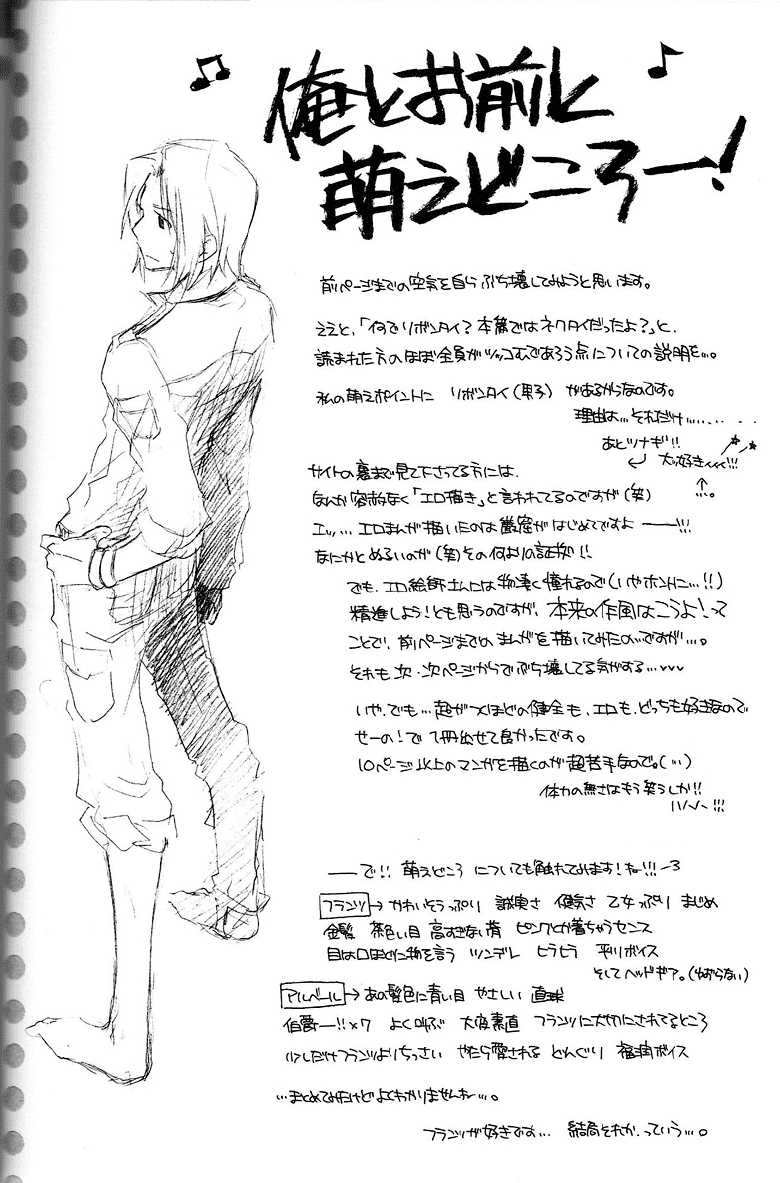 俺とお前と
萌えどころー!
前ページまでの空気を自らぶち壊してみようと思います。
ええと、「何でリボンタイ?本篇ではネクタイだったよ?」と、
読まれた方のほぼ全員がツッコむであろう点についての説明を…。
私の萌えポイントに リボンタイ(男子) があるからなのです。
理由は…それだけ…
あとツナギ!!
大ッ好き!!!
サイトの裏まで見て下さってる方には、
なんか容赦なく「エロ描き」と言われてるのですが(笑)
エッ…エロまんが描いたのは巌窟がはじめてですよ――!!!
なにかとぬるいのが(笑)その何よりの証拠!!
でも、エロ絵師さんには物凄く憧れるので(いやホントに…!!)
精進しよう!とも思うのですが、本来の作風はこうよ!って
ことで、前ページまでのまんがを描いてみたのですが…。
それも次・次ページからでぶち壊してる気がする…
いや、でも… 超がつくほどの健全も、エロも、どっちも好きなので
せーの!で1冊出せて良かったです。
10ページ以上のマンガを描くのが超苦手なので。(…)
体力の無さはもう笑うしか!!
ハハハ!!!
――で!! 萌えどころ についても触れてみます!ねー!!!
フランツ→ かわいそうっぷり 誠実さ 健気さ 乙女っぷり まじめ
金髪 茶色い目 高すぎない背 ピンクとか着ちゃうセンス
目は口ほどに物を言う ツンデレ ヒラヒラ 平川ボイス
そしてヘッドギア。(わからない)
アルベール→ あの髪色に青い目 やさしい 直球
伯爵―!!×7 よく叫ぶ 大変素直 フランツに大切にされてるところ
少しだけフランツよりちっさい やたら愛される どんぐり 福潤ボイス
…まとめてみたけどよくわかりませんねー…。
フランツが好きです… 結局それか、っていう…。